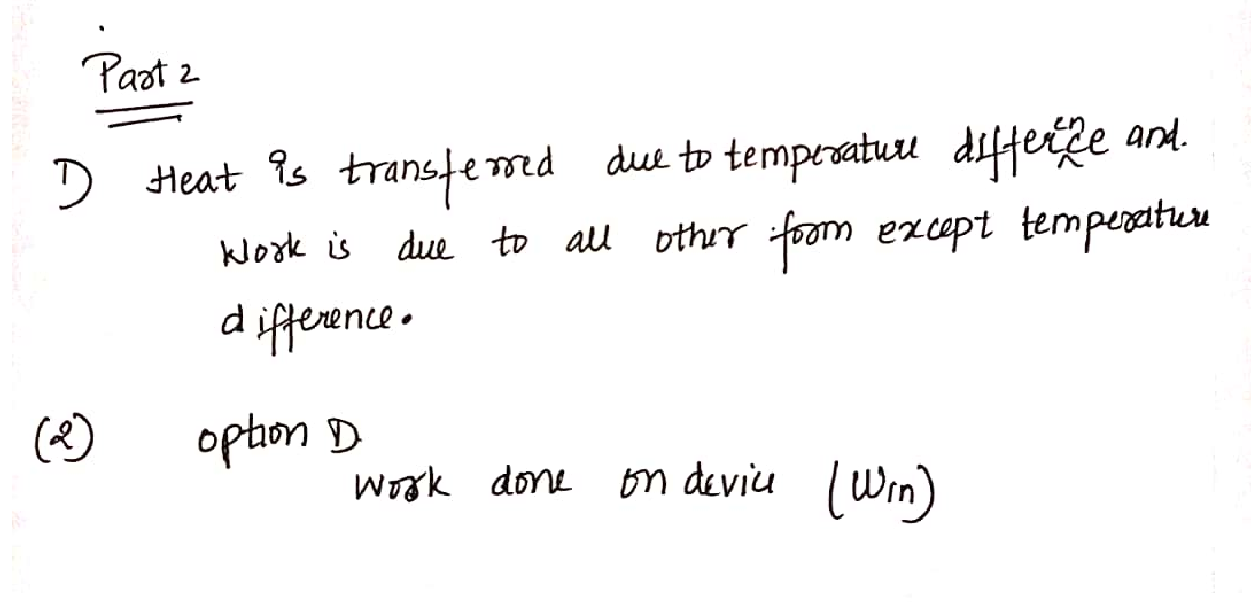 Part 2
1) Heat is transferred due to temperature difference and.
Work is due to all other form except temperature
difference.
(2) option D
Work done on device (Win)